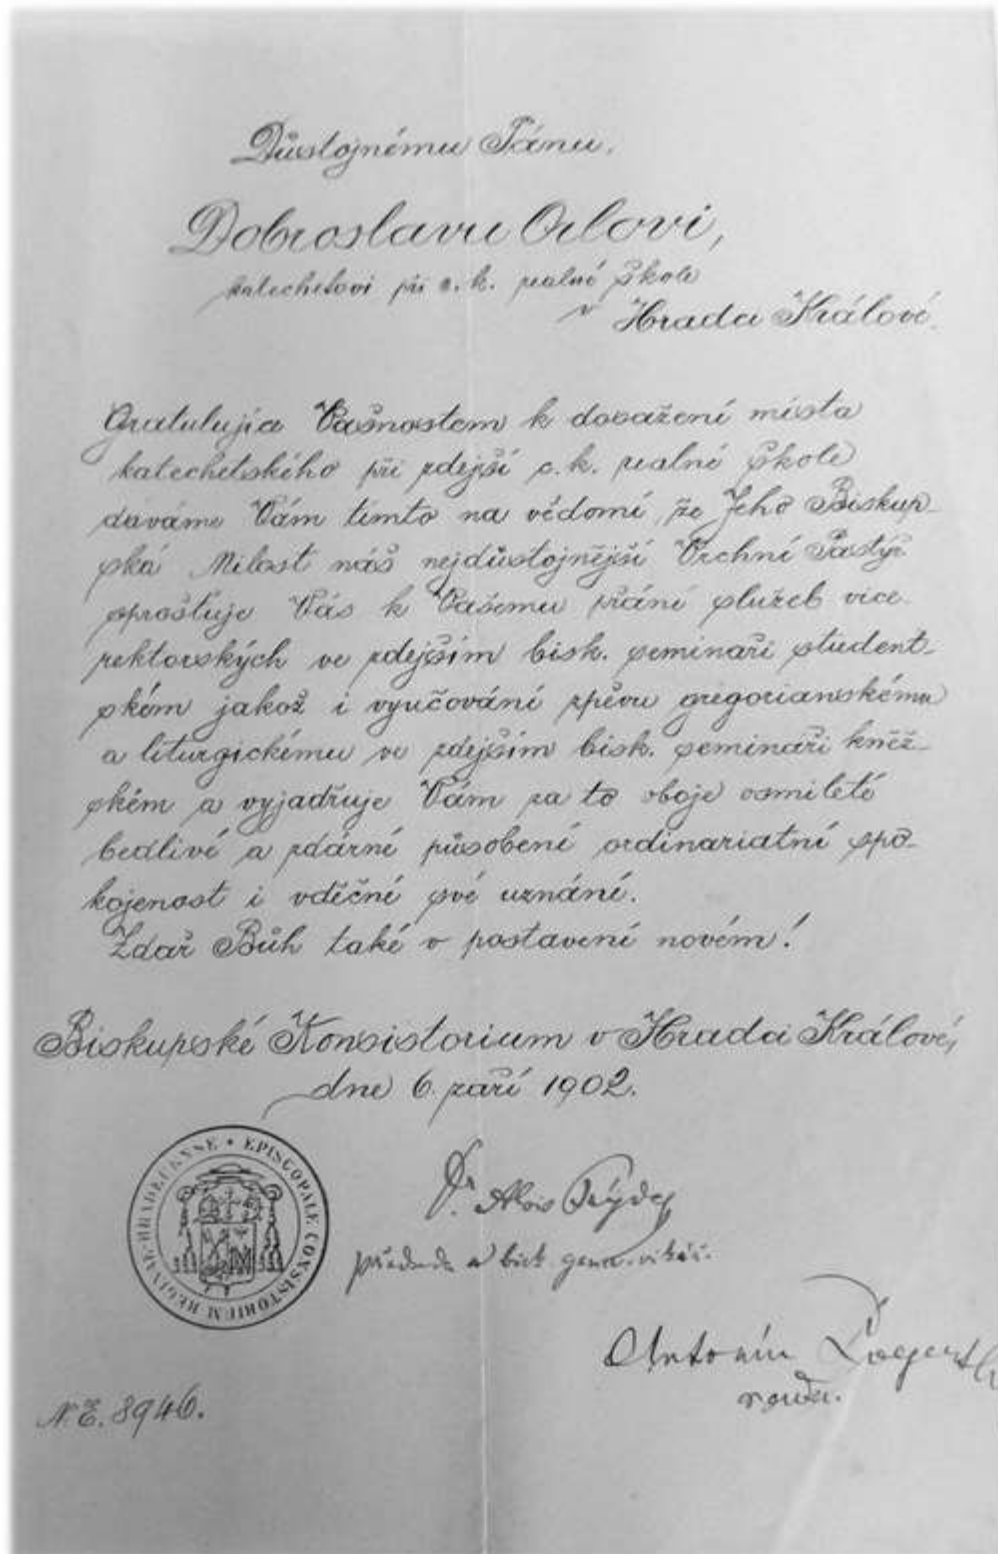 Důstojnému Pánu.
Dobroslavu Orlovi,
katechetovi při c. k. realné škole
v Hradci Králové.
Gratulujíce Vašnostem k dosažení místa
katechetského při zdejší c. k. realné škole
dáváme Vám tímto na vědomí, že Jeho Biskup-
ská Milost náš nejdůstojnější Vrchní Pastýř
sprošťuje Vás k Vašemu přání služeb vice-
rektorských ve zdejším bisk. semináři student-
ském jakož i vyučování zpěvu gregorianskému
a liturgickému ve zdejším bisk. semináři kněž-
ském a vyjadřuje Vám za to oboje osmileté
bedlivé a zdárné působení ordinariatní spo-
kojenost i vděčné své uznání.
Zdař Bůh také v postavení novém!
Biskupské Konsistorium v Hradci Králové,
dne 6. září 1902.
EPISCOPALE CONSISTORIUM REGINAE HRADECENSE
Dr. Alois
a bisk. gener. vikář.
Antonín
rada.
N. E. 8946.